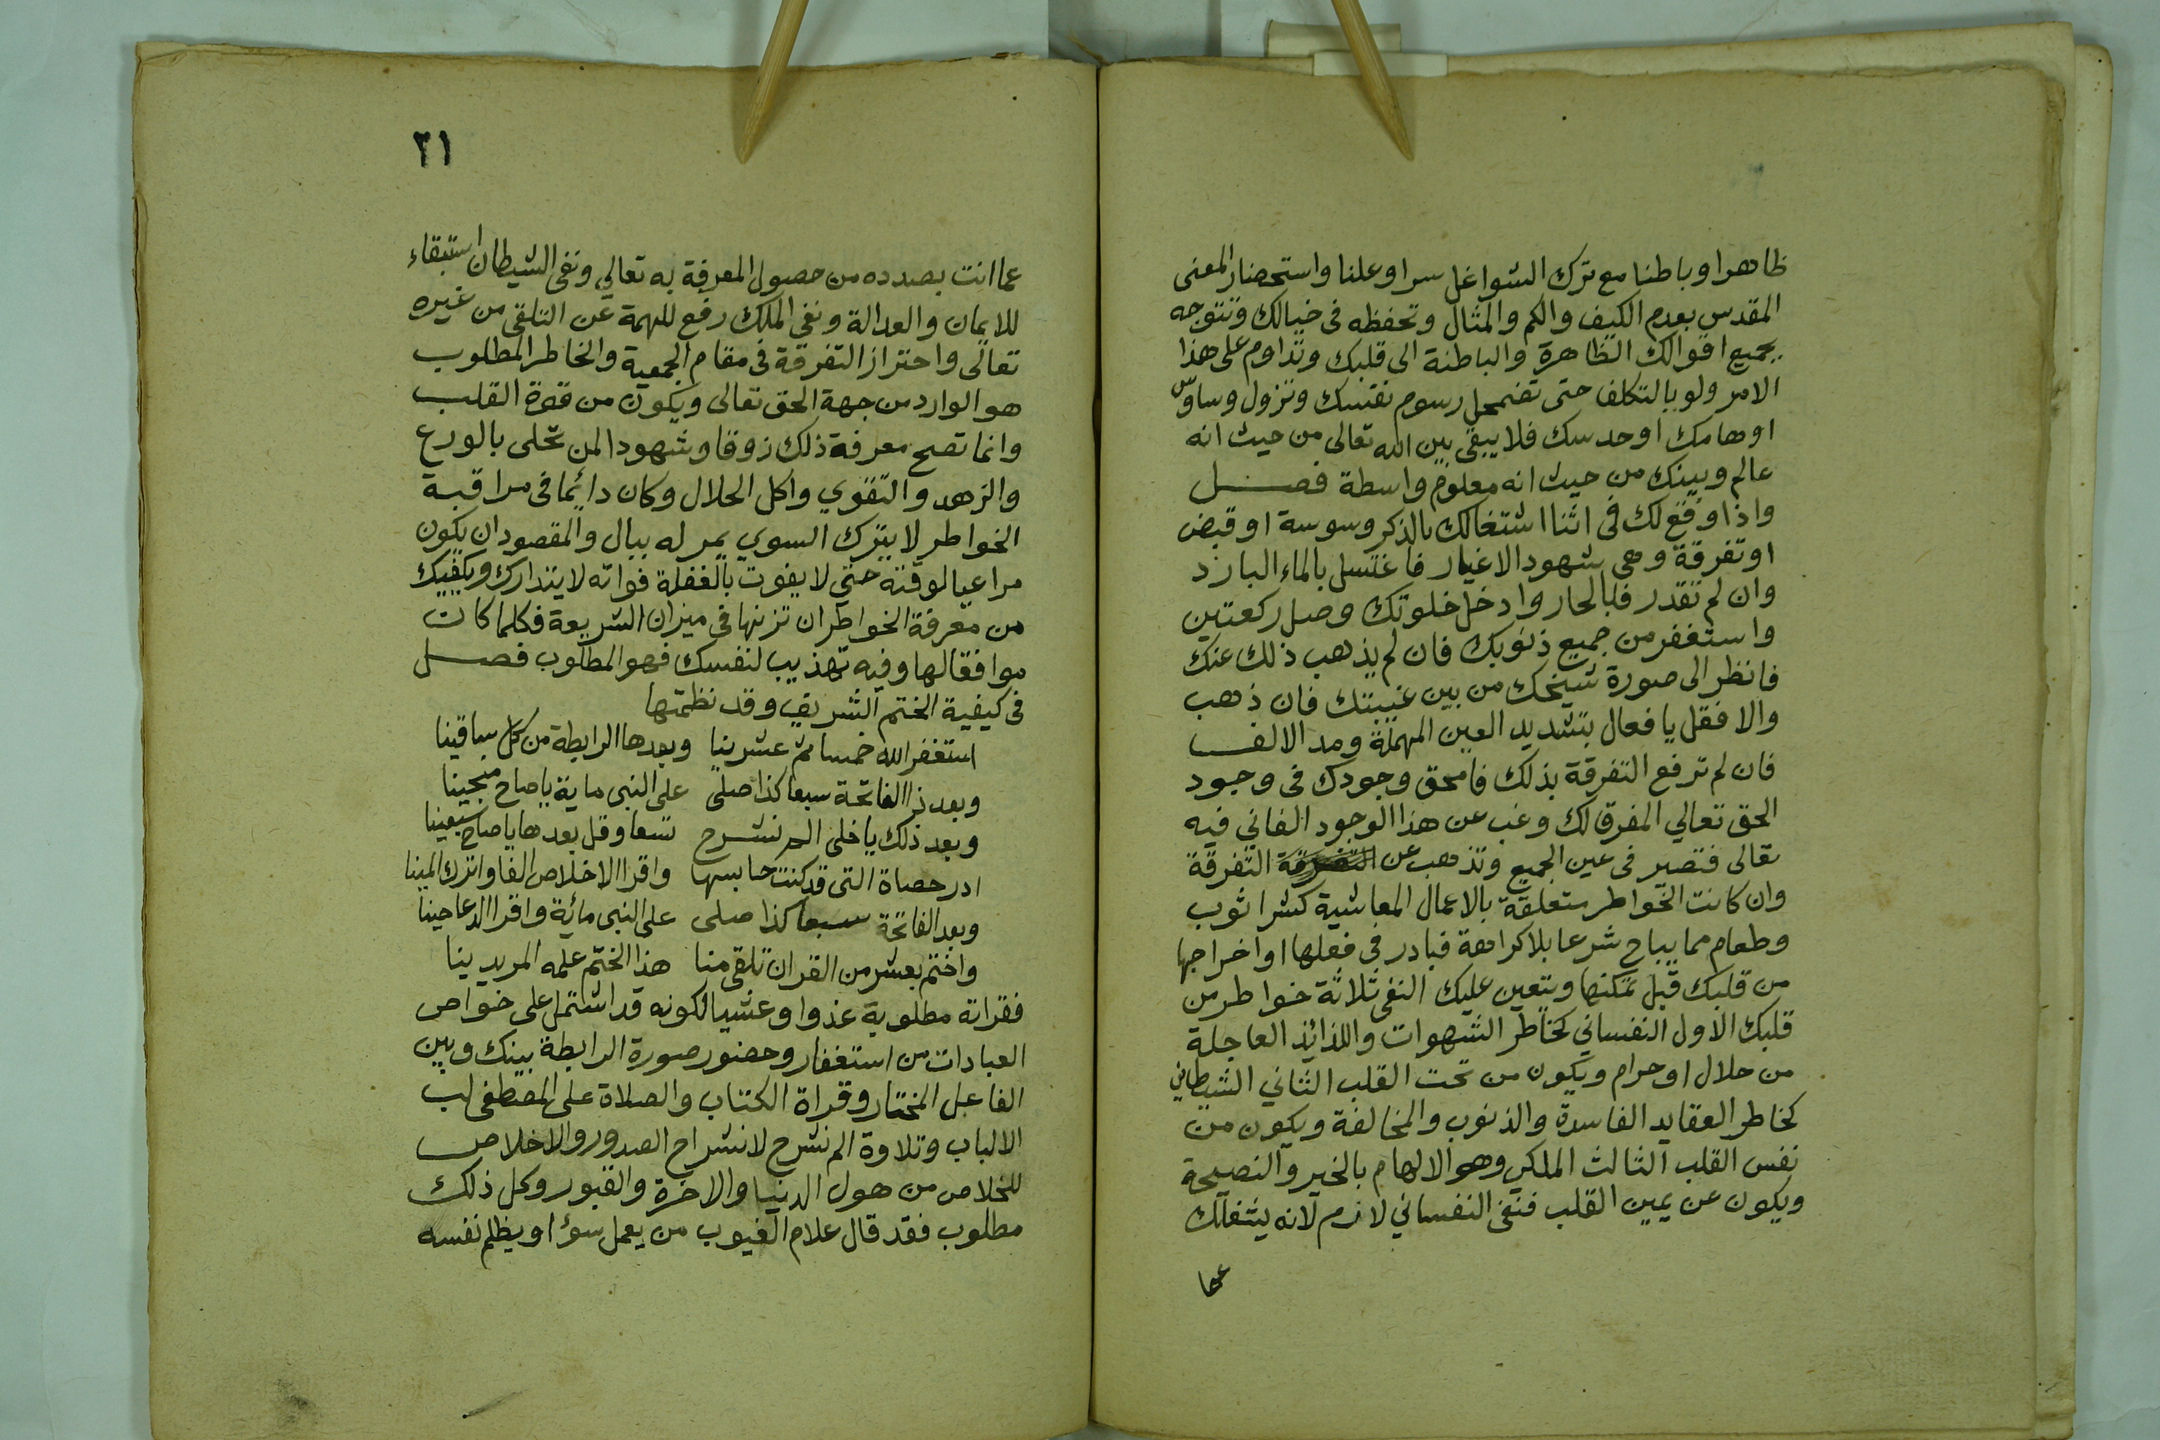 ظاهرا وباطنا مع ترك الشواغل سرا وعلنا واستحضار المعنى
المقدس بعدم الكيف والكم والمثال وتحفظه فى خيالك وتتوجه
بجميع اقوالك الظاهرة والباطنة الى قلبك وتداوم على هذا
الامر ولو بالتكلف حتى تضمحل رسوم نفسك وتزول وساوس
اوهامك او حدسك فلا يبقى بين الله تعالى من حيث انه
عالم وبينك من حيث انه معلوم واسطة فصل
واذا وقع لك فى اثنا اشتغالك بالذكر وسوسة او قبض
او تفرقة وهى شهود الاغيار فاغتسل بالماء البارد
وان لم تقدر فبالحار وادخل خلوتك وصل ركعتين
واستغفر من جميع ذنوبك فان لم يذهب ذلك عنك
فانظر الى صورة شيخك من بين غيبتك فان ذهب
والا فقل يا فعال بتشديد العين المهملة ومد الالف
فان لم ترفع التفرقة بذلك فامحق وجودك فى وجود
الحق تعالي المفرق لك وغب عن هذا الوجود الفاني فيه
تعالى فتصير فى عين الجمع وتذهب عن التفرقة
وان كانت الخواطر متعلقة بالاعمال المعاشية كشرا ثوب
وطعام مما يباح شرعا بلا كراهة فبادر فى فعلها او اخراجها
من قلبك قبل تمكنها ويتعين عليك النفى ثلاثة خواطر من
قلبك الاول النفساني كخاطر الشهوات واللذائذ العاجلة
من حلال او حرام ويكون من تحت القلب الثاني الشيطاني
كخاطر العقايد الفاسدة والذنوب والمخالفة ويكون من
نفس القلب الثالث الملكي وهو الالهام بالخير والنصيحة
ويكون عن يمين القلب فنفى النفساني لازم لانه يشغلك
عما
٢١
عما انت بصدده من حصول المعرفة به تعالي ونفى الشيطان استبقاء
للايمان والعدالة ونفى الملك رفع للهمة عن التلقى من غيره
تعالى واحتراز التفرقة فى مقام الجمعية والخاطر المطلوب
هو الوارد من جهة الحق تعالى ويكون من قوة القلب
وانما تصح معرفة ذلك ذوقا وشهودا لمن تحلى بالورع
والزهد والتقوي واكل الحلال وكان دائما فى مراقبة
الخواطر لا يترك السوي يمر له ببال والمقصود ان يكون
مراعيا لوقته حتى لا يفوت بالغفلة فواته لا يتدارك ويكفيك
من معرفة الخواطر ان تزنها فى ميزان الشريعة فكلما كانت
موافقا لها وفيه تهذيب لنفسك فهو المطلوب فصل
فى كيفية الختم الشريف وقد نظمتها
استغفر الله خمسا ثم عشرينا وبعدها الرابطة من كل ساقينا
وبعد ذا الفاتحة سبعا كذا صلى على النبى ماية يا صاح منجينا
وبعد ذلك يا خلى الم نشرح تسعا وقل بعدها يا صاح سبعينا
ادر حصاة التى قد كنت حابسها واقرا الاخلاص الفا واترك المينا
وبعد الفاتحة سبعا كذا صلى على النبى مائة واقرا الدعا حينا
واختم بعشر من القران تلقى منا هذا الختم علمه المريدينا
فقراته مطلوبة غدوا وعشيا لكونه قد اشتمل على خواص
العبادات من استغفار وحضور صورة الرابطة بينك وبين
الفاعل المختار وقراة الكتاب والصلاة على المصطفى لب
الالباب وتلاوة الم نشرح لانشراح الصدور والاخلاص
للخلاص من هول الدنيا والاخرة والقبور وكل ذلك
مطلوب فقد قال علام الغيوب من يعمل سؤا او يظلم نفسه